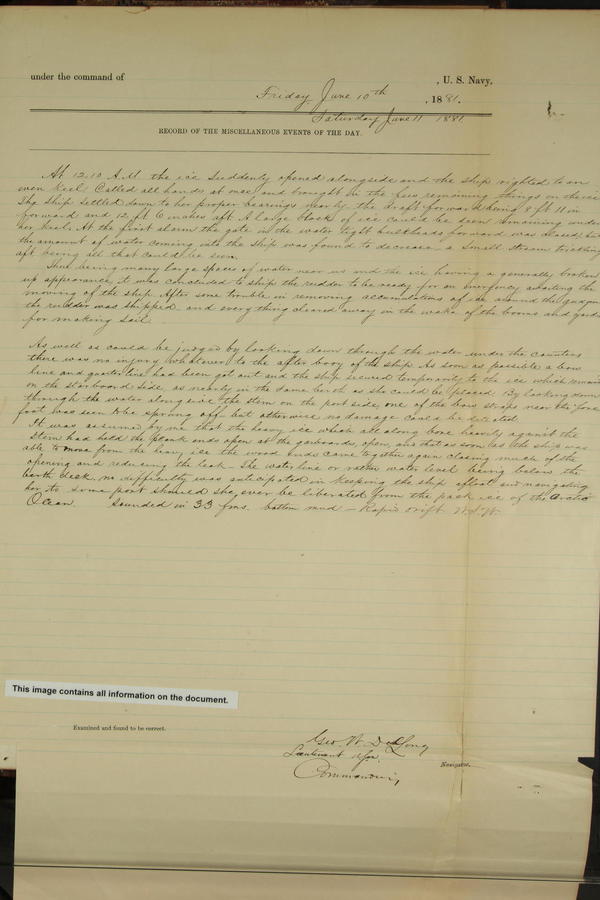 under the command of , U. S. Navy,
Friday June 10th , 1881.
Saturday June 11 1881.
RECORD OF THE MISCELLANEOUS EVENTS OF THE DAY.
At 12.10 A.M. the ice suddenly opened alongside and the ship righted to an
even keel. Called all hands at once and brought in the few remaining things on the ice
The ship settled down to her proper bearings nearly the draft forward being 8 ft 11 in
forward and 12 ft 6 inches aft. A large block of ice could be seen remaining under
her keel. At the first alarm the gate in the water tight bulkheads forward was closed, but
the amount of water coming into the ship was found to decrease, a small stream trickling
aft being all that could be seen.
There being many large spaces of water near us and the ice having a generally broken
up appearance, it was concluded to ship the rudder to be ready for an emergency awaiting the
moving of the ship. After some trouble in removing accumulations of ice around the gudgeons
the rudder was shipped and everything cleared away in the wake of the booms and yards
for making sail.
As well as could be judged by looking down through the water under the counters
there was no injury whatever to the after body of the ship. As soon as possible a bow
line and quarter line had been got out and the ship secured temporarily to the ice which remained
on the starboard side, as nearly in the same berth as she could be placed. By looking down
through the water alongside the stem on the port side, one of the bow straps near the fore
foot was seen to be sprung off, but otherwise no damage could be detected.
It was assumed by me that the heavy ice which all along bore heavily against the
stem had held the plank ends open at the garboards, open, and that as soon as the ship was
able to move from the heavy ice the wood ends came together again closing much of the
opening and reducing the leak – The water line or rather water level being below the
berth deck, no difficulty was anticipated in keeping the ship afloat and navigating
her to some port should she ever be liberated from the pack ice of the Arctic
Ocean. Sounded in 33 fms. bottom mud – Rapid drift
This image contains all information on the document.
Examined and found to be correct.
Geo. W. DeLong
Lieutenant USN.
Navigator.
Commanding